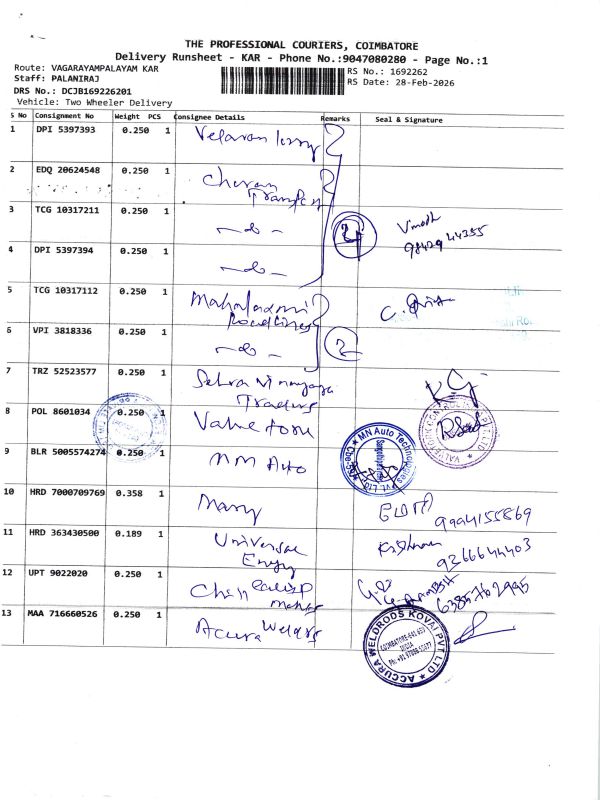 THE PROFESSIONAL COURIERS, COIMBATORE
Delivery Runsheet - KAR - Phone No.:9047080280 - Page No.:1
Route: VAGARAYAMPALAYAM KAR
Staff: PALANIRAJ
DRS No.: DCJB169226201
Vehicle: Two Wheeler Delivery
RS No.: 1692262
RS Date: 28-Feb-2026
S No Consignment No Weight PCS Consignee Details Remarks Seal & Signature
1 DPI 5397393 0.250 1 Velavan
2 EDQ 20624548 0.250 1 Cheran Transport
3 TCG 10317211 0.250 1 -do- 2 Vinoth 98429 44355
4 DPI 5397394 0.250 1 -do-
5 TCG 10317112 0.250 1 Mahalaxmi
6 VPI 3818336 0.250 1 -do- 2
7 TRZ 52523577 0.250 1 Selva Vinayaga Traders
8 POL 8601034 0.250 1
9 BLR 5005574274 0.250 1 MM Auto
MN Auto Technologies PVT. LTD
10 HRD 7000709769 0.358 1 Mary 9994155869
11 HRD 363430500 0.189 1 Universal Energy Krishnan 9366644403
12 UPT 9022020 0.250 1 6385762995
13 MAA 716660526 0.250 1 Accura Welds
ACCURA WELDRODS KOVAI PVT LTD